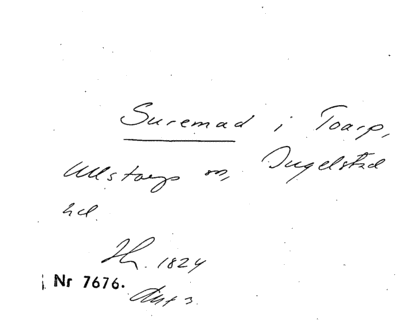 Suremad i Toarp,
Ullstorps sn, Ingelstad
hd.
1824
Nr 7676.